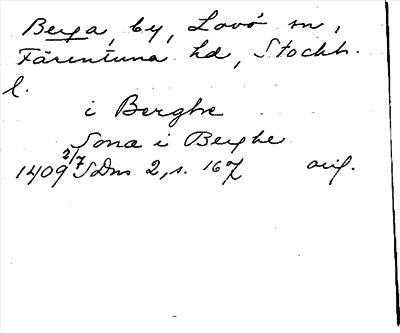 Berga, by, Lovö sn,
Färentuna hd, Stockh.
l.
i Berghe
Jona i Berghe
1409 2/7 SDns 2, s. 167 orig.